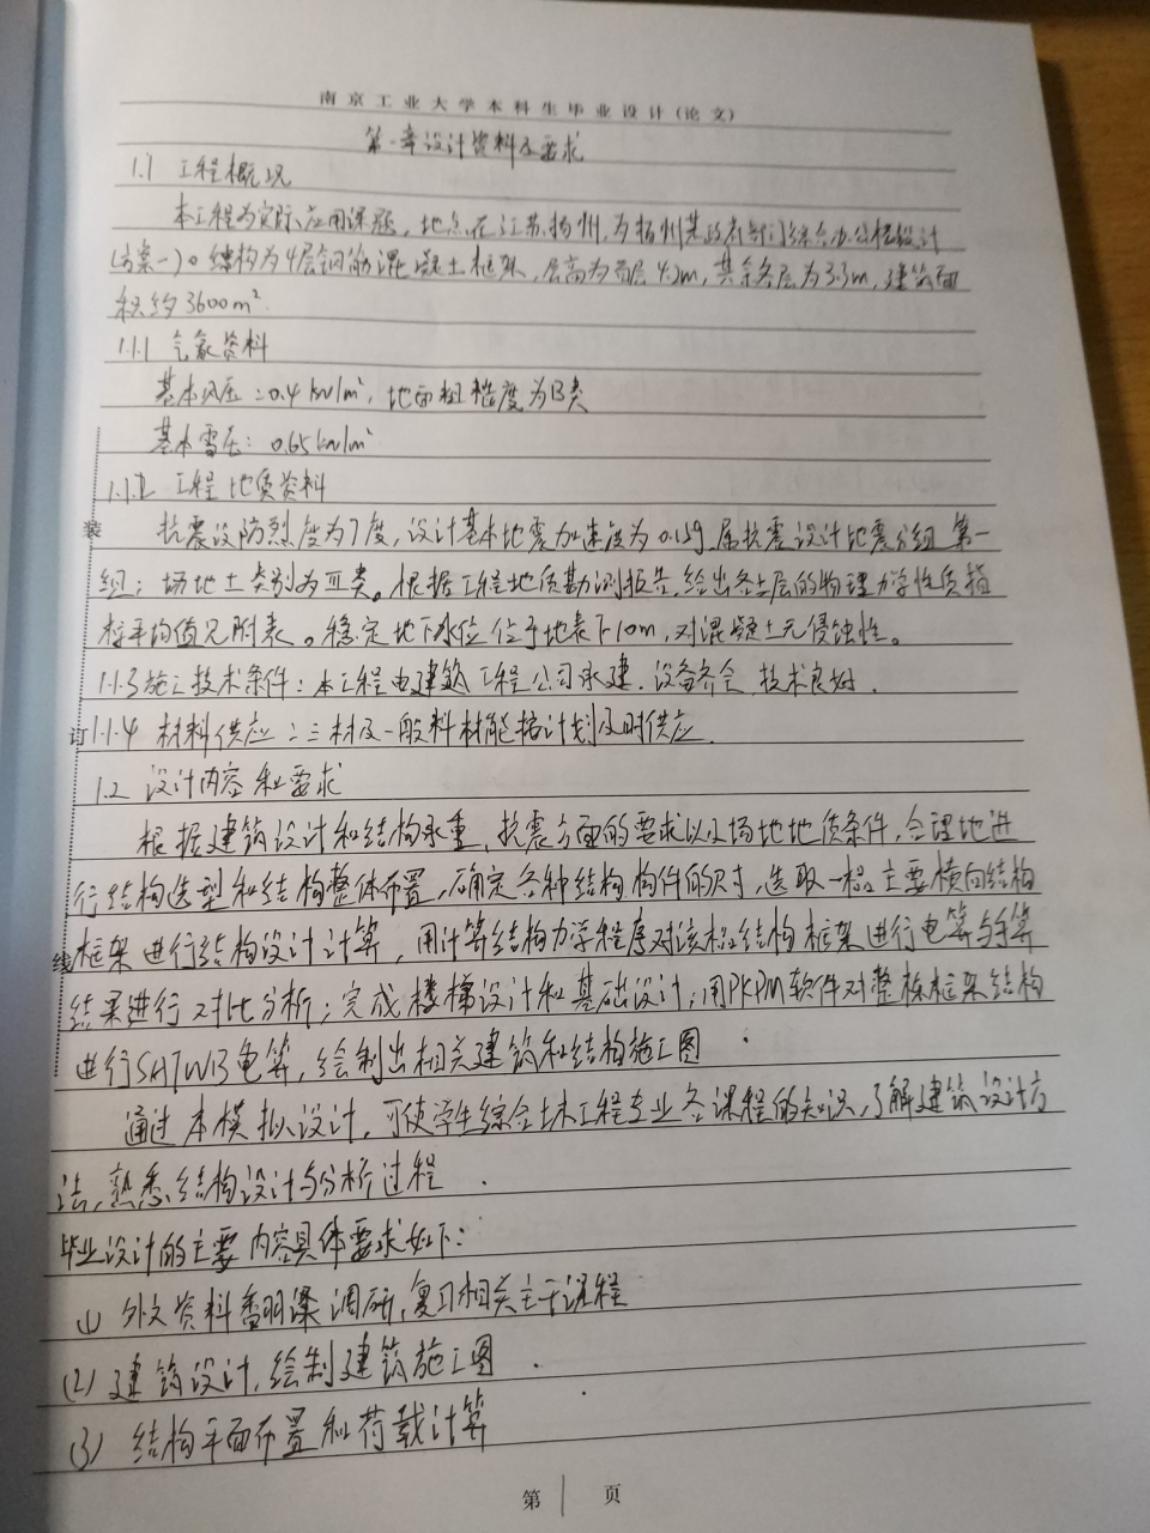 南京工业大学本科生毕业设计(论文)
第一章设计资料及要求
1.1 工程概况
本工程为实际应用课题，地点在江苏扬州，为扬州某政府部门综合办公楼设计
(方案一)。结构为4层钢筋混凝土框架，层高为首层4.2m，其余各层为3.3m，建筑面
积约3600m²．
1.1.1 气象资料
基本风压：0.4kN/m²，地面粗糙度为B类
基本雪压：0.65kN/m²
1.1.2 工程地质资料
抗震设防烈度为7度，设计基本地震加速度为0.15g，属抗震设计地震分组第一
组；场地土类别为Ⅲ类。根据工程地质勘测报告，给出各土层的物理力学性质指
标平均值见附表。稳定地下水位位于地表下10m，对混凝土无侵蚀性。
1.1.3施工技术条件：本工程由建筑工程公司承建．设备齐全，技术良好．
1.1.4 材料供应：三材及一般料材能按计划及时供应．
1.2 设计内容和要求
根据建筑设计和结构承重、抗震方面的要求以及场地地质条件，合理地进
行结构选型和结构整体布置，确定各种结构构件的尺寸，选取一榀主要横向结构
框架进行结构设计计算，用计算结构力学程序对该榀结构框架进行电算与手算
结果进行对比分析；完成楼梯设计和基础设计；用PKPM软件对整栋框架结构
进行SATWE电算，绘制出相关建筑和结构施工图．
通过本模拟设计，可使学生综合土木工程专业各课程的知识，了解建筑设计方
法，熟悉结构设计与分析过程．
毕业设计的主要内容具体要求如下：
(1) 外文资料翻译调研，复习相关主干课程
(2) 建筑设计，绘制建筑施工图．
(3) 结构平面布置和荷载计算
装
订
线
第 1 页